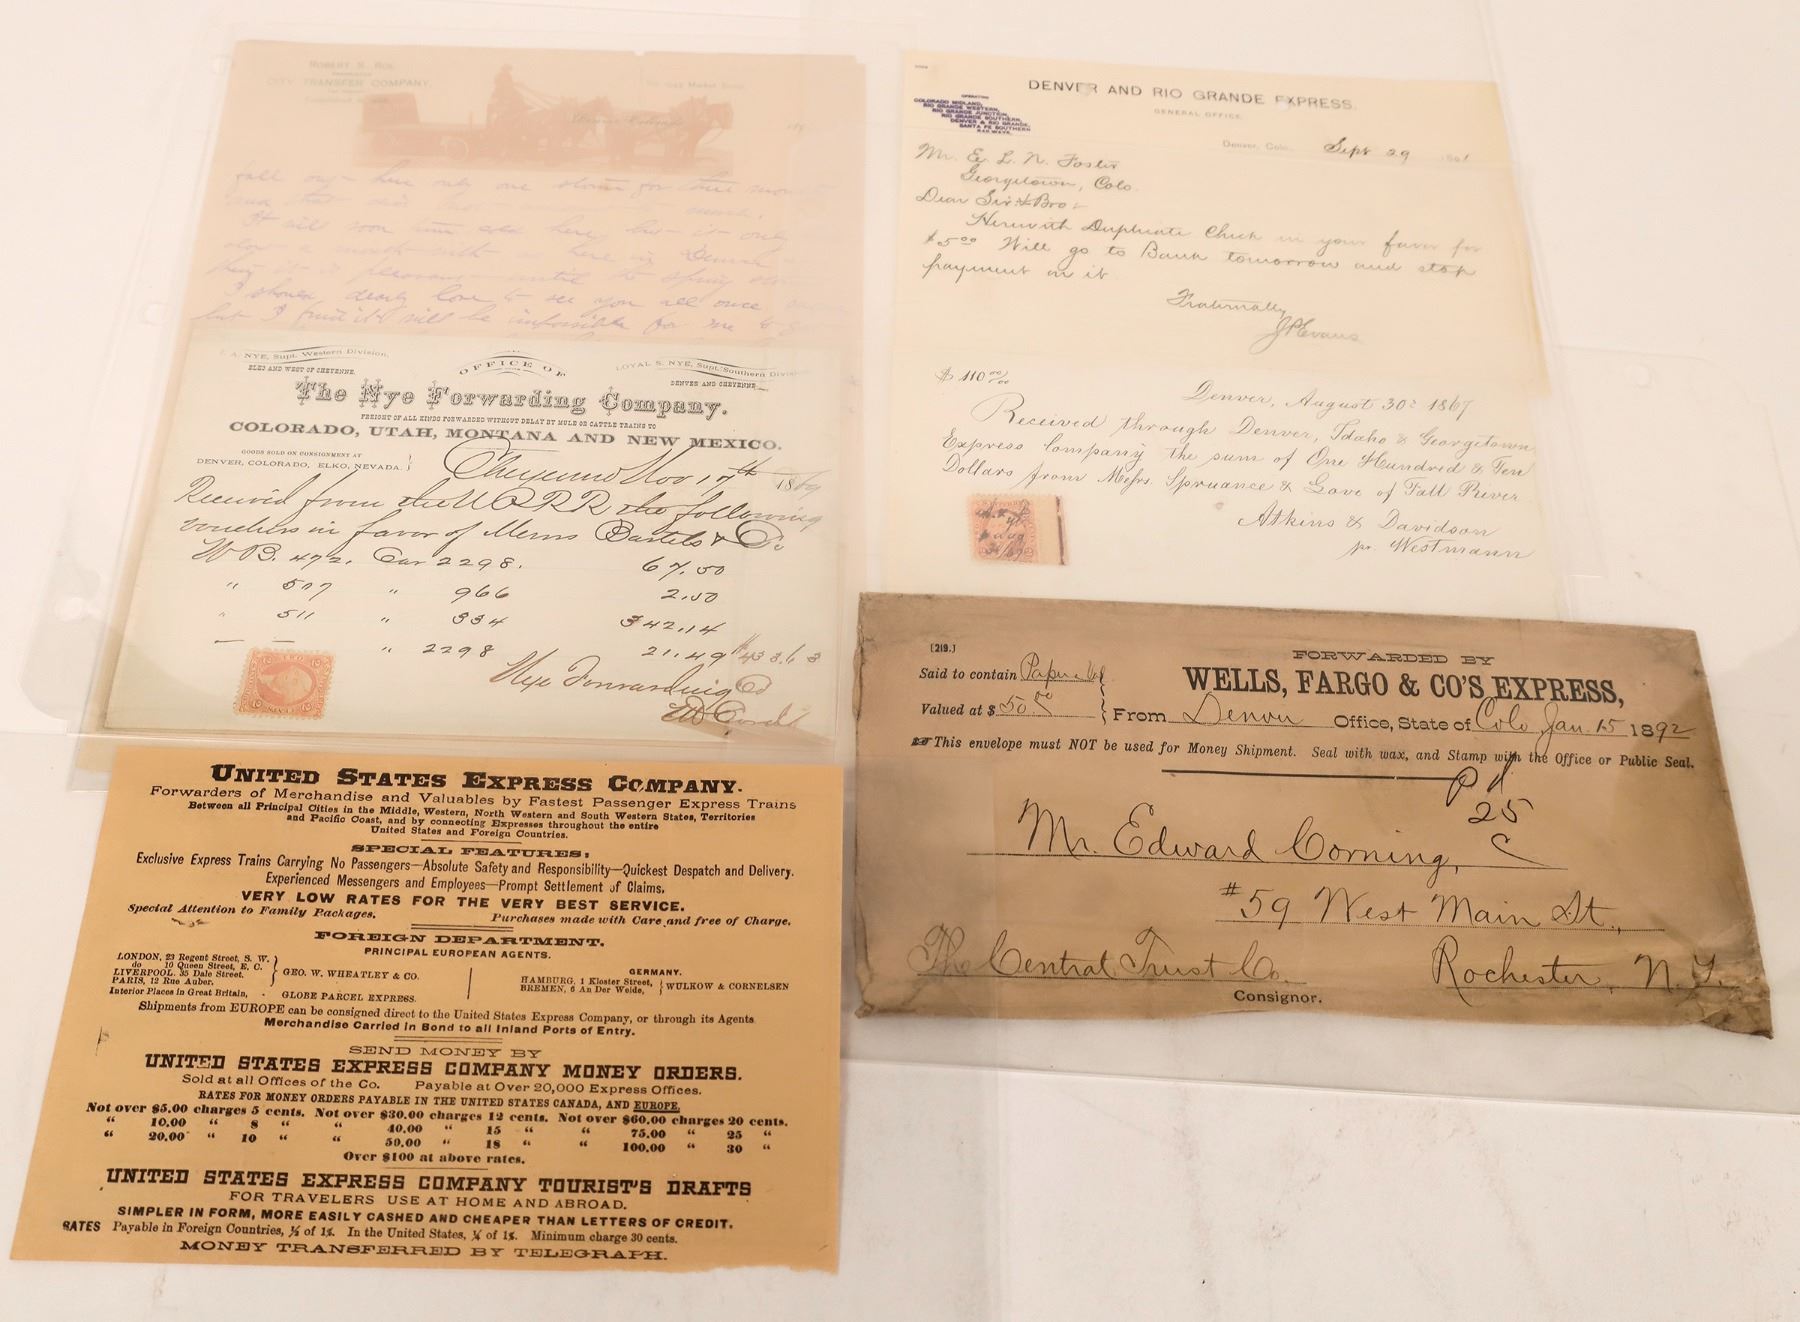 ROBERT S. ROE
CITY TRANSFER COMPANY,
Market Street
Denver, Colorado
189
fall out - here only one storm for three months
and that
It will soon turn cold here, but it is only
in Denver
then it is pleasant until
I should dearly love to see you all once
but I fear it will be impossible for me to
L. A. NYE, Supt. Western Division,
ELKO AND WEST OF CHEYENNE.
OFFICE OF
LOYAL S. NYE, Supt. Southern Divis
DENVER AND CHEYENNE
The Nye Forwarding Company.
FREIGHT OF ALL KINDS FORWARDED WITHOUT DELAY BY MULE OR CATTLE TRAINS TO
COLORADO, UTAH, MONTANA AND NEW MEXICO.
GOODS SOLD ON CONSIGNMENT AT
DENVER, COLORADO, ELKO, NEVADA.
Cheyenne Nov 17th 1869
Received from the U P R R the following
vouchers in favor of Messrs Bartels & Co
WB. 472. Car 2298. 67.50
" 507 " 966 2.50
" 511 " 334 342.14
" 2298 21.49 $433.63
Nye Forwarding Co
DENVER AND RIO GRANDE EXPRESS.
GENERAL OFFICE.
OPERATING
COLORADO MIDLAND,
RIO GRANDE WESTERN,
RIO GRANDE JUNCTION,
RIO GRANDE SOUTHERN,
DENVER & RIO GRANDE,
SANTA FE SOUTHERN
RAILWAYS.
Denver, Colo. Sept 29 1891
Mr. E. L. N. Foster
Georgetown, Colo.
Dear Sir & Bro:-
Herewith Duplicate Check in your favor for
$5.00 Will go to Bank tomorrow and stop
payment on it
Fraternally
J P Evans
$110 00/00
Denver, August 30th 1867
Received through Denver, Idaho & Georgetown
Express Company the sum of One Hundred & Ten
Dollars from Messrs Spruance & Love of Fall River
Atkins & Davidson
pr. Westmann
[219.]
FORWARDED BY
WELLS, FARGO & CO'S EXPRESS,
Said to contain Paper Val
Valued at $ 50.00
From Denver Office, State of Colo Jan. 15 1892
This envelope must NOT be used for Money Shipment. Seal with wax, and Stamp with the Office or Public Seal.
Pd
25
c
Mr. Edward Corning,
#59 West Main St.,
The Central Trust Co. Rochester, N.Y.
Consignor.
UNITED STATES EXPRESS COMPANY.
Forwarders of Merchandise and Valuables by Fastest Passenger Express Trains
Between all Principal Cities in the Middle, Western, North Western and South Western States, Territories
and Pacific Coast, and by connecting Expresses throughout the entire
United States and Foreign Countries.
SPECIAL FEATURES:
Exclusive Express Trains Carrying No Passengers—Absolute Safety and Responsibility—Quickest Despatch and Delivery.
Experienced Messengers and Employees—Prompt Settlement of Claims.
VERY LOW RATES FOR THE VERY BEST SERVICE.
Special Attention to Family Packages. Purchases made with Care and free of Charge.
FOREIGN DEPARTMENT.
PRINCIPAL EUROPEAN AGENTS.
LONDON, 23 Regent Street, S. W.
do 10 Queen Street, E. C.
LIVERPOOL, 35 Dale Street.
PARIS, 12 Rue Auber,
GEO. W. WHEATLEY & CO.
Interior Places in Great Britain, - GLOBE PARCEL EXPRESS.
GERMANY.
HAMBURG, 1 Kloster Street,
BREMEN, 6 An Der Weide,
WULKOW & CORNELSEN
Shipments from EUROPE can be consigned direct to the United States Express Company, or through its Agents
Merchandise Carried in Bond to all Inland Ports of Entry.
SEND MONEY BY
UNITED STATES EXPRESS COMPANY MONEY ORDERS.
Sold at all Offices of the Co. Payable at Over 20,000 Express Offices.
RATES FOR MONEY ORDERS PAYABLE IN THE UNITED STATES CANADA, AND EUROPE,
Not over $5.00 charges 5 cents. Not over $30.00 charges 12 cents. Not over $60.00 charges 20 cents.
" 10.00 " 8 " " 40.00 " 15 " " 75.00 " 25 "
" 20.00 " 10 " " 50.00 " 18 " " 100.00 " 30 "
Over $100 at above rates.
UNITED STATES EXPRESS COMPANY TOURIST'S DRAFTS
FOR TRAVELERS USE AT HOME AND ABROAD.
SIMPLER IN FORM, MORE EASILY CASHED AND CHEAPER THAN LETTERS OF CREDIT.
RATES Payable in Foreign Countries, ½ of 1%. In the United States, ¼ of 1%. Minimum charge 30 cents.
MONEY TRANSFERRED BY TELEGRAPH.